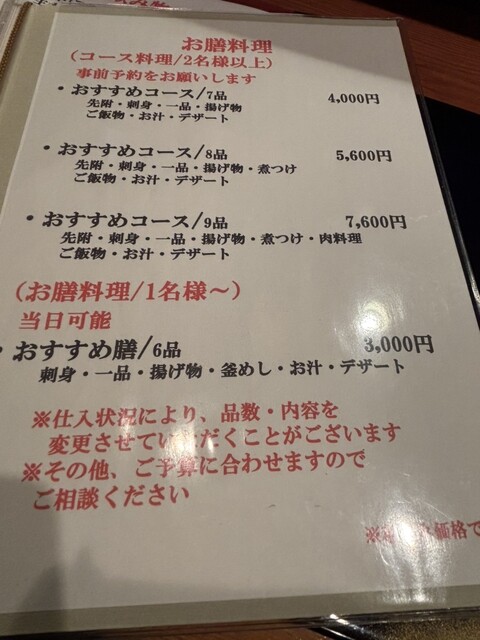 お膳料理
（コース料理/2名様以上）
事前予約をお願いします
・おすすめコース/7品 4,000円
先附・刺身・一品・揚げ物
ご飯物・お汁・デザート
・おすすめコース/8品 5,600円
先附・刺身・一品・揚げ物・煮つけ
ご飯物・お汁・デザート
・おすすめコース/9品 7,600円
先附・刺身・一品・揚げ物・煮つけ・肉料理
ご飯物・お汁・デザート
（お膳料理/1名様～）
当日可能
・おすすめ膳/6品 3,000円
刺身・一品・揚げ物・釜めし・お汁・デザート
※仕入状況により、品数・内容を
変更させていただくことがございます
※その他、ご予算に合わせますので
ご相談ください
価格で